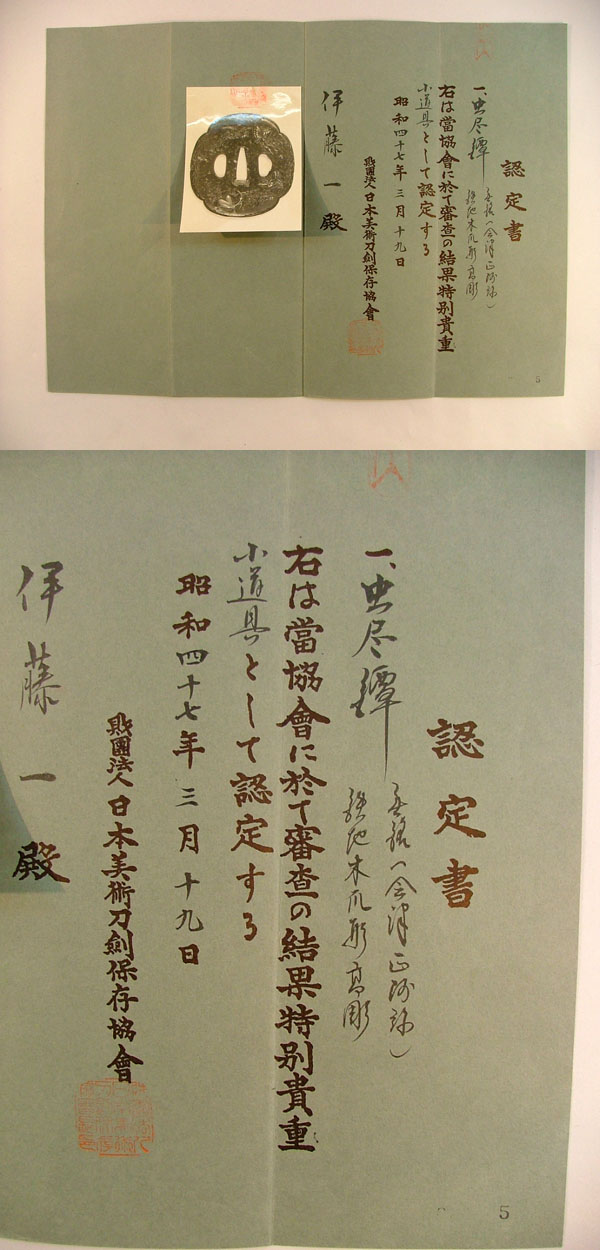 認定書
一、虫尽鐔
無銘(会津正阿弥)
鉄地木瓜形高彫
右は當協會に於て審査の結果特別貴重
小道具として認定する
昭和四十七年三月十九日
財團法人日本美術刀劍保存協會
伊藤一殿
5
認定書
一、虫尽鐔
無銘(会津正阿弥)
鉄地木瓜形高彫
右は當協會に於て審査の結果特別貴重
小道具として認定する
昭和四十七年三月十九日
財團法人日本美術刀劍保存協會
伊藤一殿
5